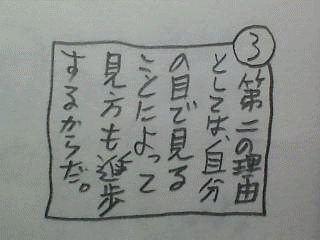 ③
第二の理由
としては、自分
の目で見る
ことによって
見方も進歩
するからだ。